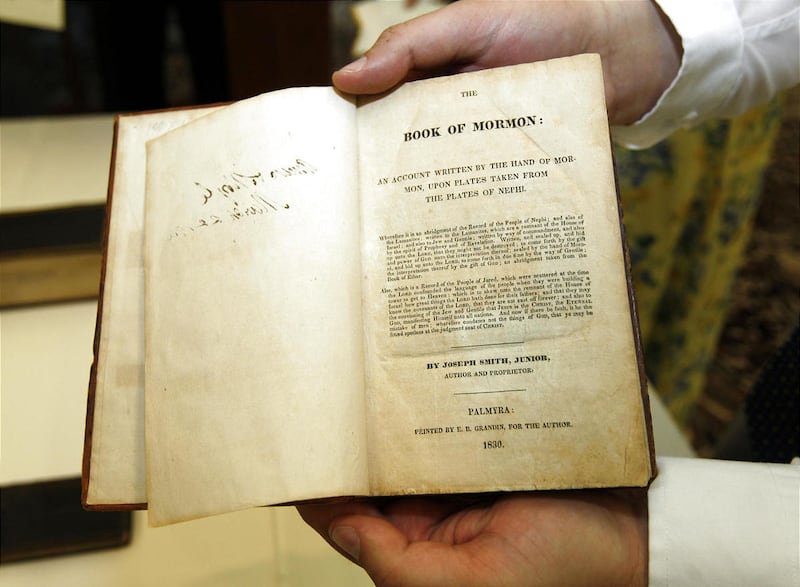 THE
BOOK OF MORMON:
AN ACCOUNT WRITTEN BY THE HAND OF MOR-
MON, UPON PLATES TAKEN FROM
THE PLATES OF NEPHI.
Wherefore it is an abridgment of the Record of the People of Nephi; and also of
the Lamanites; written to the Lamanites, which are a remnant of the House of
Israel; and also to Jew and Gentile; written by way of commandment, and also
by the spirit of Prophesy and of Revelation. Written, and sealed up, and hid
up unto the LORD, that they might not be destroyed; to come forth by the gift
and power of GOD, unto the interpretation thereof; sealed by the hand of Moro-
ni, and hid up unto the LORD, to come forth in due time by the way of Gentile;
the interpretation thereof by the gift of GOD; an abridgment taken from the
Book of Ether.
Also, which is a Record of the People of Jared, which were scattered at the time
the LORD confounded the language of the people when they were building a
tower to get to Heaven: which is to shew unto the remnant of the House of
Israel how great things the LORD hath done for their fathers; and that they may
know the covenants of the LORD, that they are not cast off forever; and also to
the convincing of the Jew and Gentile that JESUS is the CHRIST, the ETERNAL
GOD, manifesting Himself unto all nations. And now if there be fault, it be the
mistake of men; wherefore condemn not the things of GOD, that ye may be
found spotless at the judgment seat of CHRIST.
BY JOSEPH SMITH, JUNIOR,
AUTHOR AND PROPRIETOR.
PALMYRA:
PRINTED BY E. B. GRANDIN, FOR THE AUTHOR.
1830.